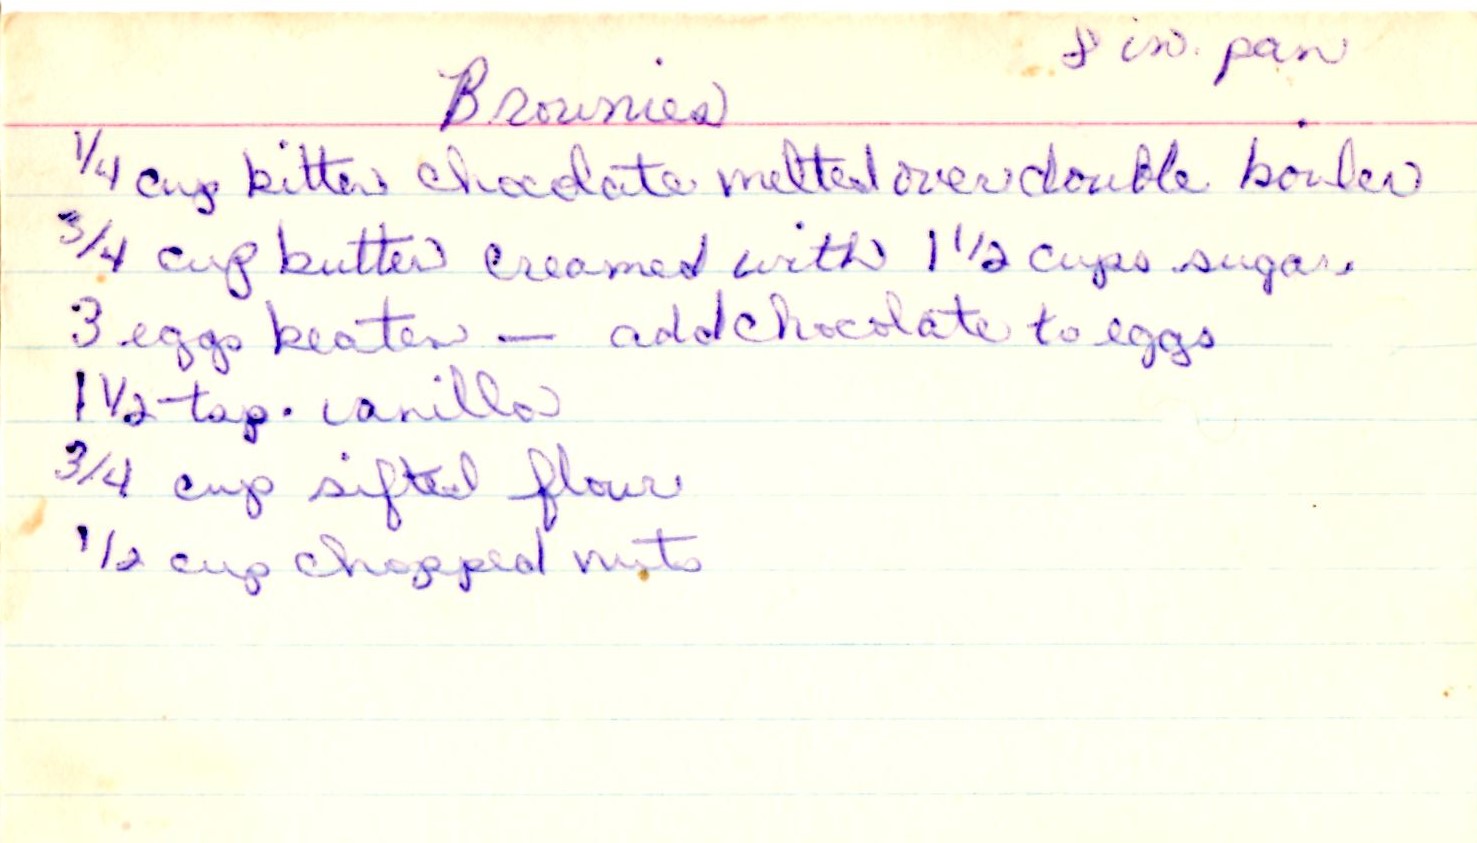 8 in. pan
Brownies
1/4 cup bitter chocolate melted over double boiler
3/4 cup butter creamed with 1 1/2 cups sugar.
3 eggs beaten — add chocolate to eggs
1 1/2 tsp. vanilla
3/4 cup sifted flour
1/2 cup chopped nuts